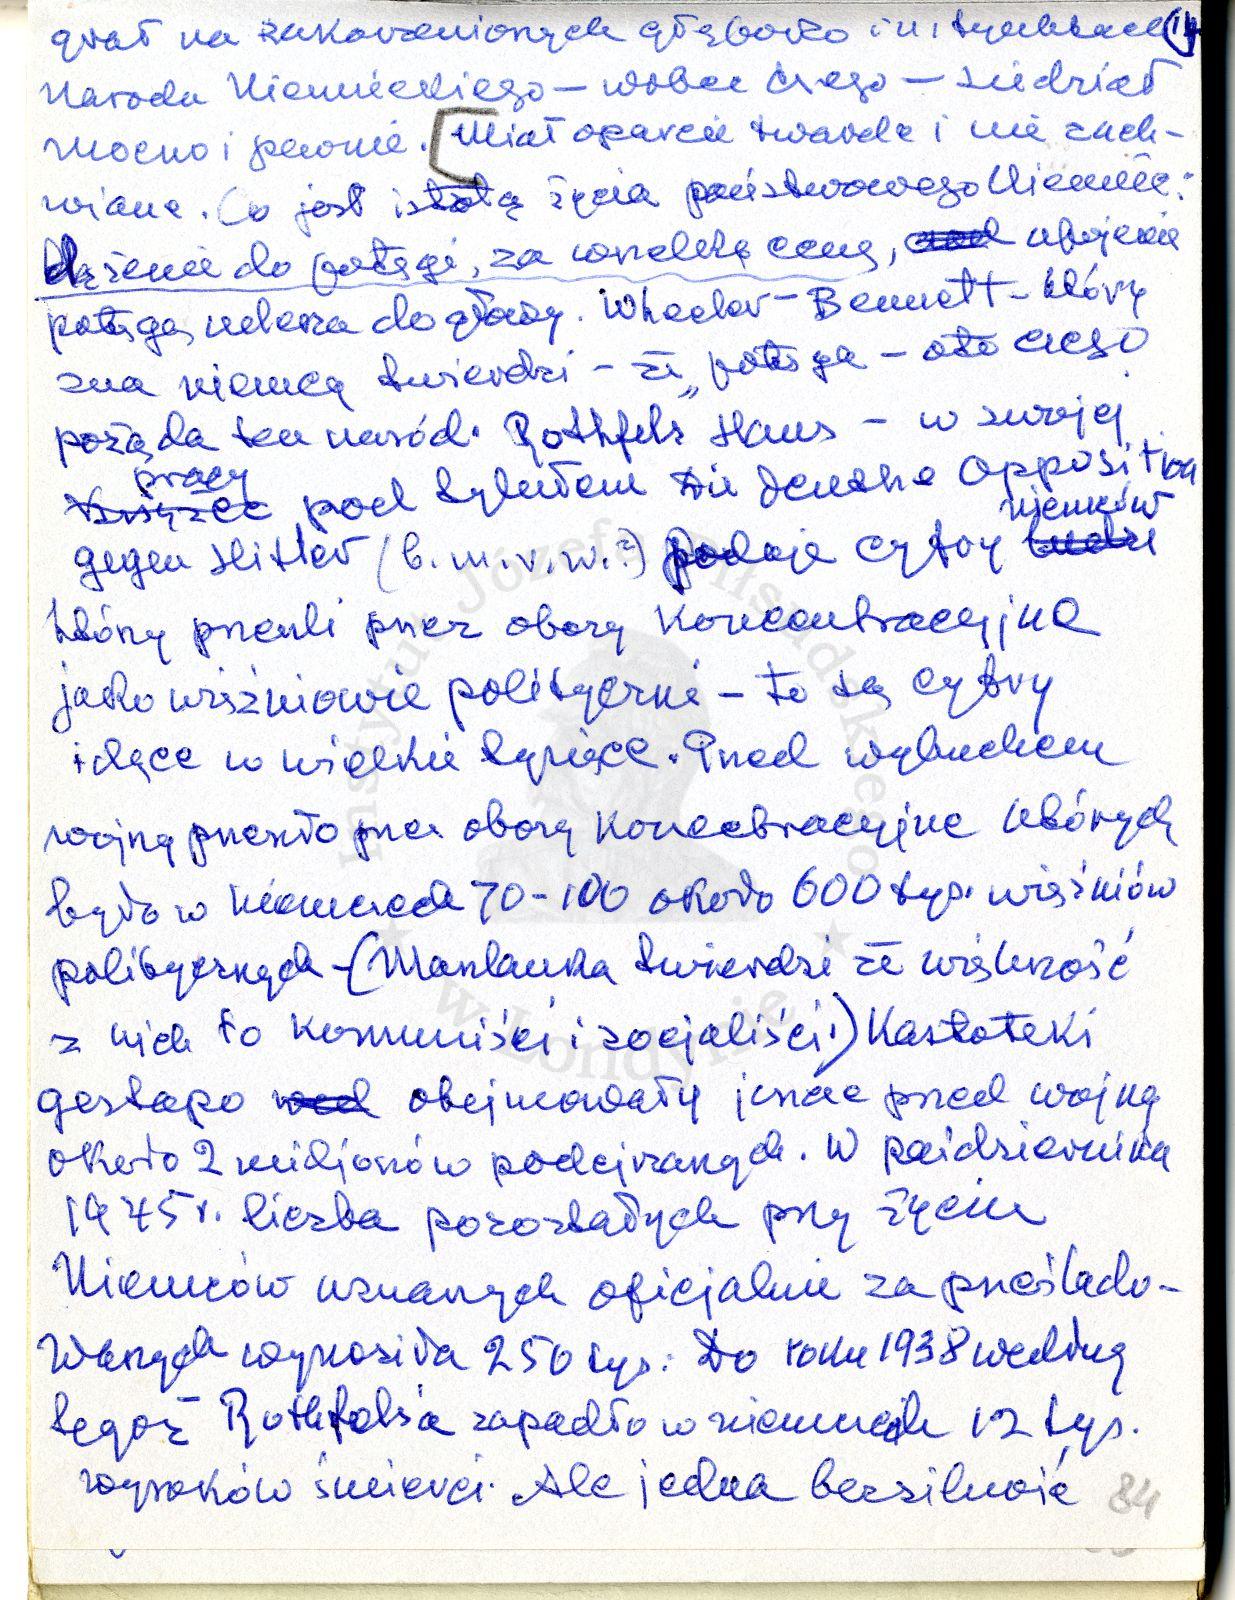 grał na zakorzenionych głęboko i n i tych
14
Narodu Niemieckiego – wobec czego – siedział
mocno i pewnie. [Miał oparcie twarde i nie zach-
wiane. Co jest istotą życia państwowego Niemiec:
dążenie do potęgi, za wszelką cenę, upojenie
potęgą uderza do głowy. Wheeler-Bennett – który
zna niemcy twierdzi – że „potęga – oto czego
pożąda ten naród. Rothfels Hans – w swojej
pracy
pod tytułem Die Deutsche Opposition
niemców
gegen Hitler (b.m.r.w.?) podaje cyfry ludzi
którzy przeszli przez obozy koncentracyjne
jako więźniowie polityczni – to są cyfry
idące w wielkie tysiące. Przed wybuchem
wojny przeszło przez obozy koncentracyjne których
było w niemczech 70-100 około 600 tys. więźniów
politycznych – (Manlauna twierdzi że większość
z nich to komuniści i socjaliści!) Kartoteki
gestapo obejmowały jeszcze przed wojną
około 2 miljonów podejrzanych. W październiku
1945 r. liczba pozostałych przy życiu
Niemców uznanych oficjalnie za prześlado-
wanych wynosiła 250 tys. Do roku 1938 według
tegoż Rothfelsa zapadło w niemczech 12 tys.
wyroków śmierci. Ale jedna bezsilność
84
Instytut Józefa Piłsudskiego
w Londynie